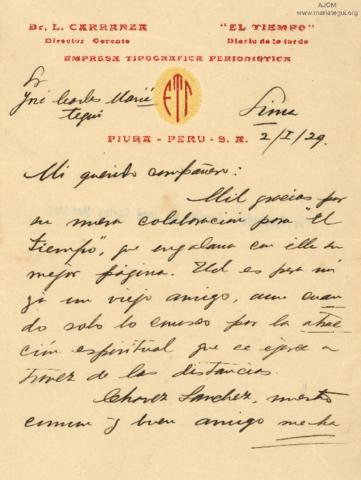 AJCM
www.mariategui.org
Dr. L. CARRANZA
Director Gerente
"EL TIEMPO"
Diario de la tarde
EMPRESA TIPOGRAFICA PERIODISTICA
ETP
PIURA - PERU - S. A.
Sr
José Carlos Mariá
tegui
Lima
2/I/29.
Mi querido compañero:
Mil gracias por
su nueva colaboración para El
Tiempo", que engalana con ella su
mejor página. Ud es para mí
ya un viejo amigo, aun cuan
do solo lo conozco por la atrac
ción espiritual que se ejerce a
través de las distancias.
Chávez Sánchez, nuestro
común y buen amigo me ha